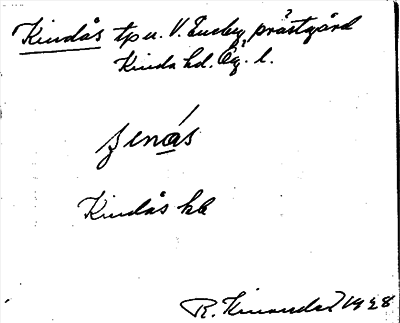 Kindås tp u. V. Eneby prästgård
Kinda hd. Ög. l.
Kindås hb
R. Kinander 1928